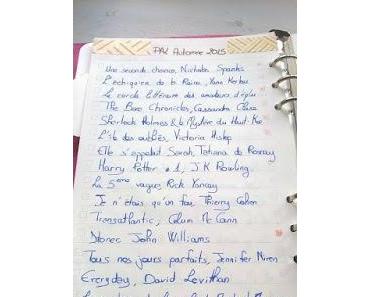 PAL Automne 2015
Une seconde chance, Nicholas Sparks
L'échiquier de la Reine, Yann Kerlau
Le cercle littéraire des amateurs d'éplu
The Bane Chronicles, Cassandra Clare
Sherlock Holmes & le Mystère du Haut-Koë
L'île des oubliés, Victoria Hislop
Elle s'appelait Sarah, Tatiana de Rosnay
Harry Potter #1, J.K Rowling
La 5ème vague, Rick Yancey
Je n'étais qu'un fou, Thierry Cohen
Transatlantic, Colum McCann
Stoner, John Williams
Tous nos jours parfaits, Jennifer Niven
Everyday, David Levithan